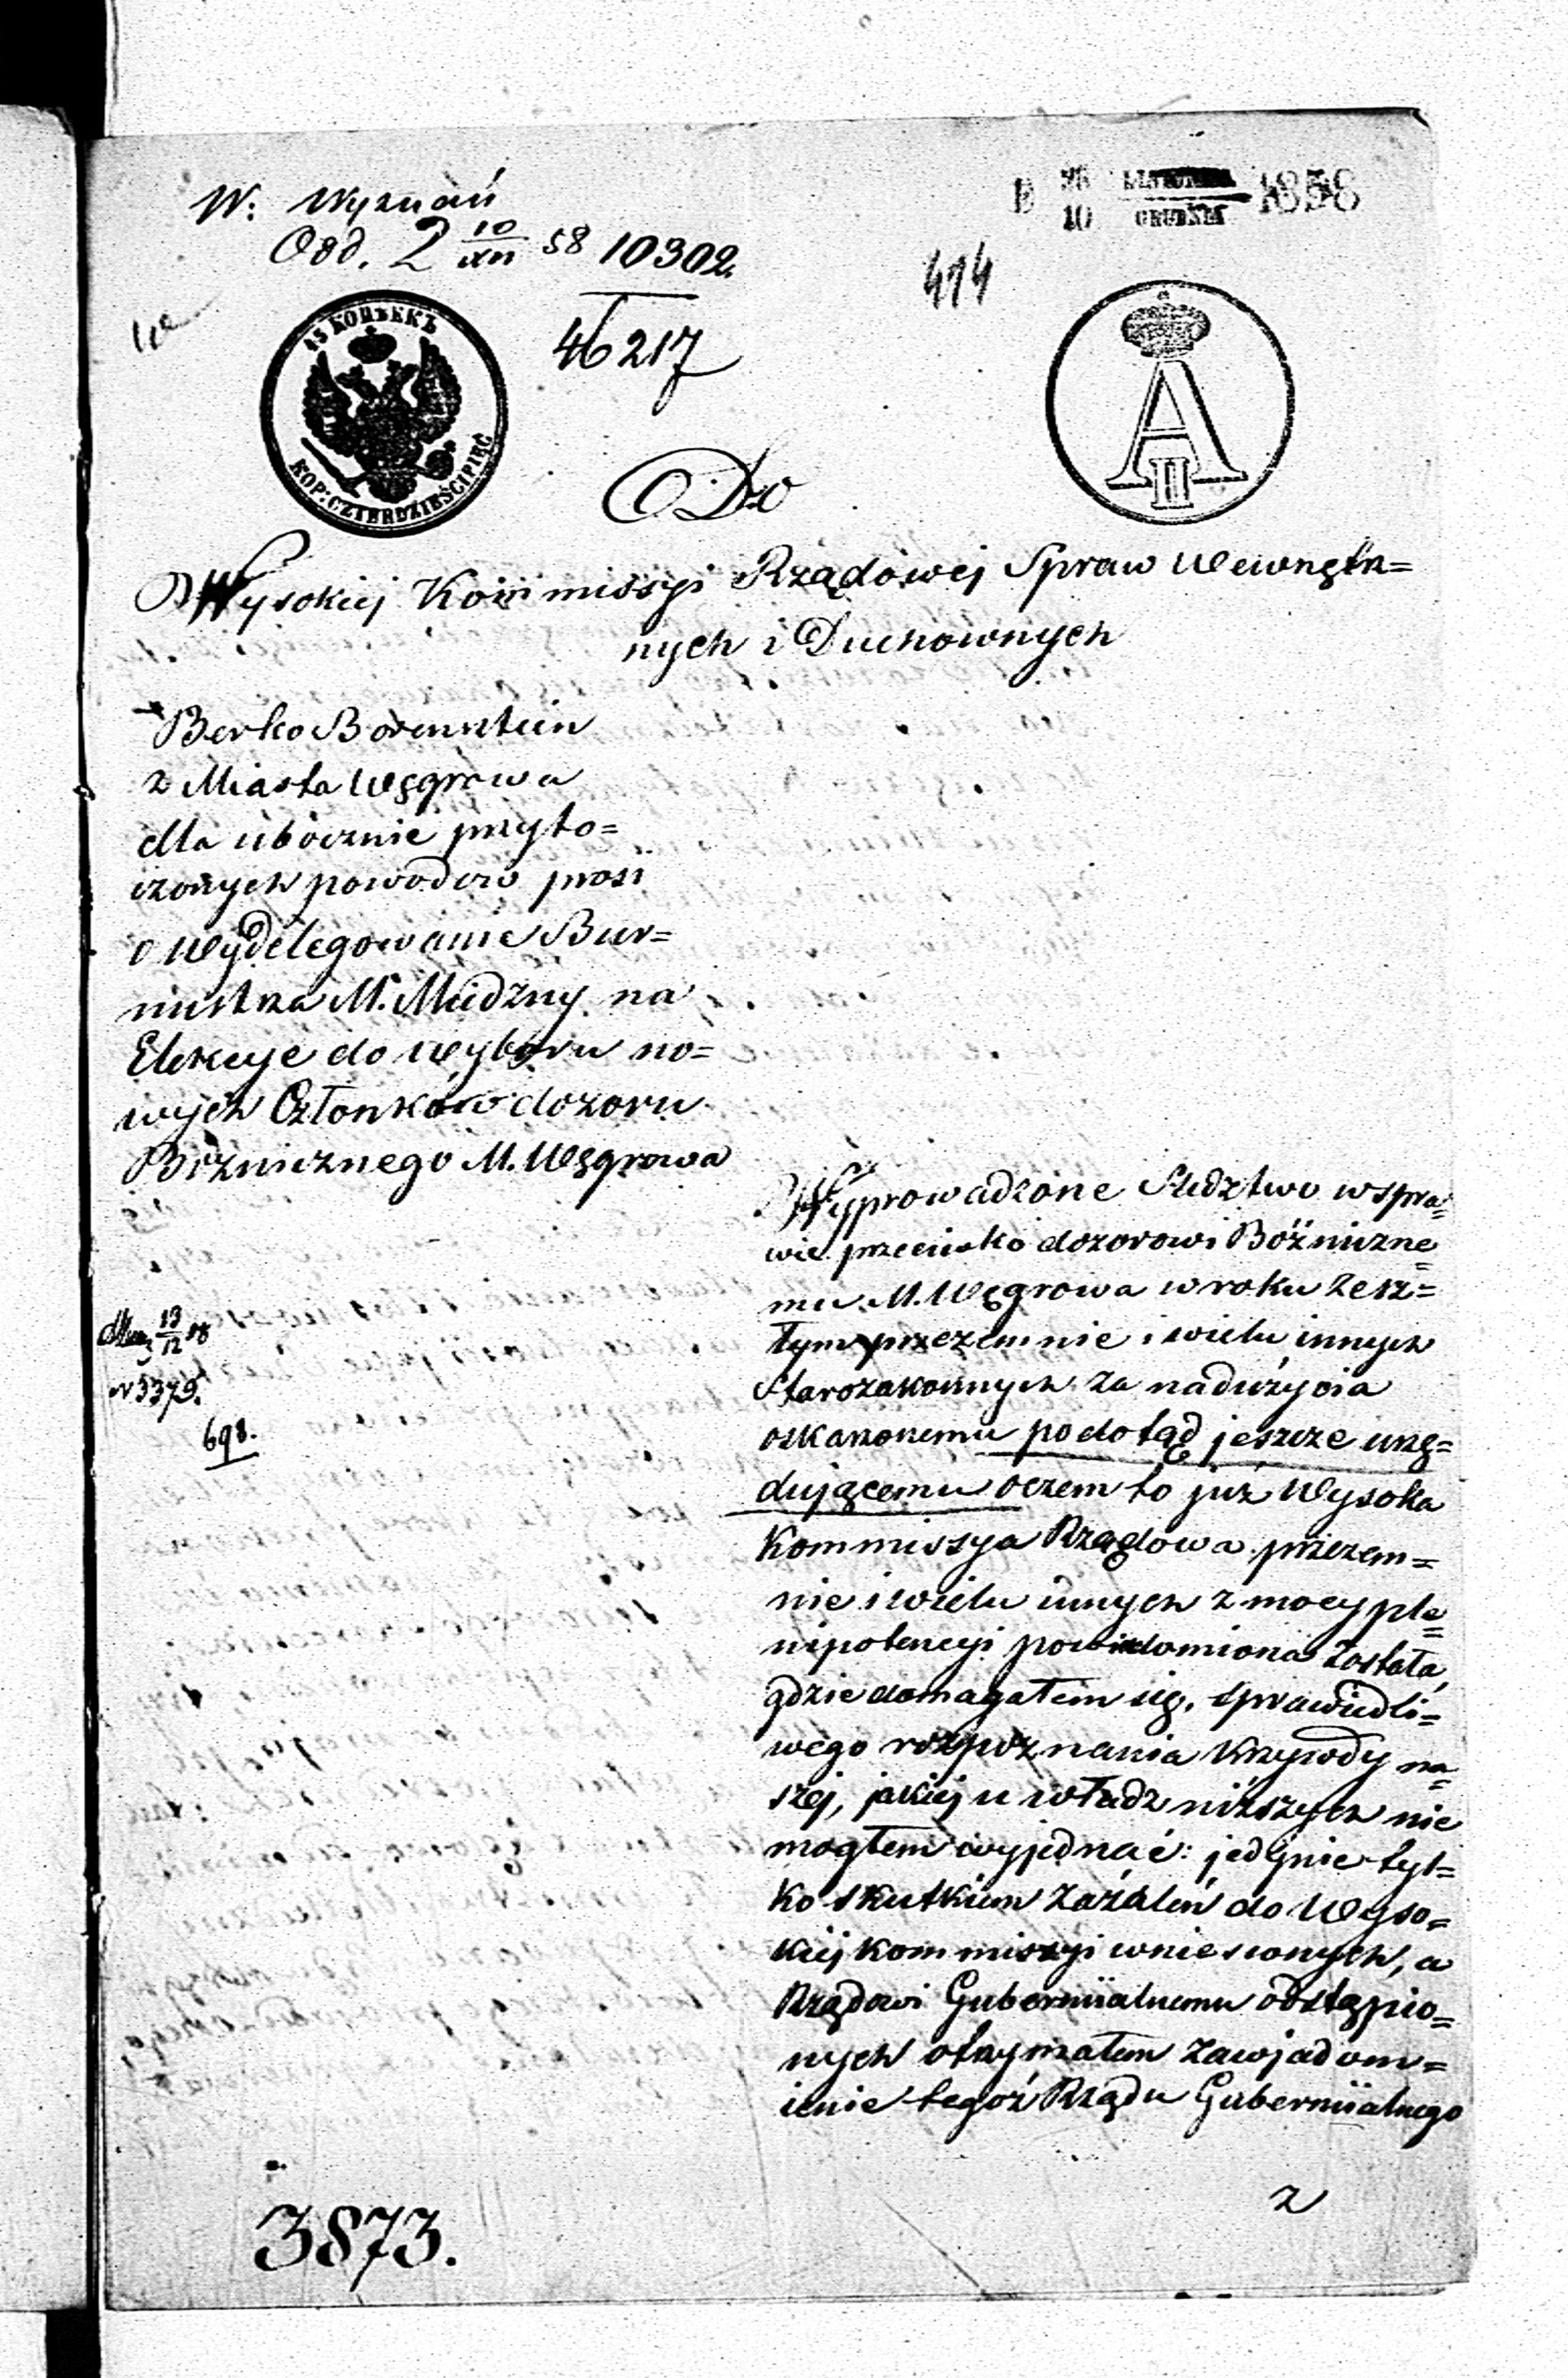 W: Wyznań
Odd. 2 10/XII 58 10302.
46217
D 28/10 LISTOPADA/GRUDNIA 1858
414
15 КОПѢЕКЪ
KOP: CZTERDZIEŚCI PIĘĆ
A II
Do
Wysokiej Kommissyi Rządowej Spraw Wewnętrz=
nych i Duchownych
Berko Borensztein
z Miasta Węgrowa
dla ubocznie przyto=
czonych powodów prosi
o wydelegowanie Bur=
mistrza M. na
Elekcye do wyboru no=
wych Członków dozoru
Bóżnicznego M. Węgrowa
Wyprowadzone Śledztwo w spra=
wie przeciwko dozorowi Bóżniczne=
mu M. Węgrowa w roku zesz=
łym przezemnie i wielu innych
Starozakonnych za nadużycia
oskarzonemu po dotąd jeszcze urzę=
dującemu oczem to już Wysoka
Kommissya Rządowa przezem=
nie i wielu innych z mocy ple=
nipotencyi powiadomiona została,
gdzie domagałem się, sprawiedli=
wego rozpoznania krzywdy na=
szej, jakiej u władz niższych nie
mogłem wyjednać: jedynie tyl=
ko skutkiem zażaleń do Wyso=
kiej kommissyi wniesionych, a
Rządowi Gubernialnemu odstąpio=
nych otrzymałem zawjadom=
ienie tegoż Rządu Gubernialnego
z
13/12 58
N 3379.
698.
3873.